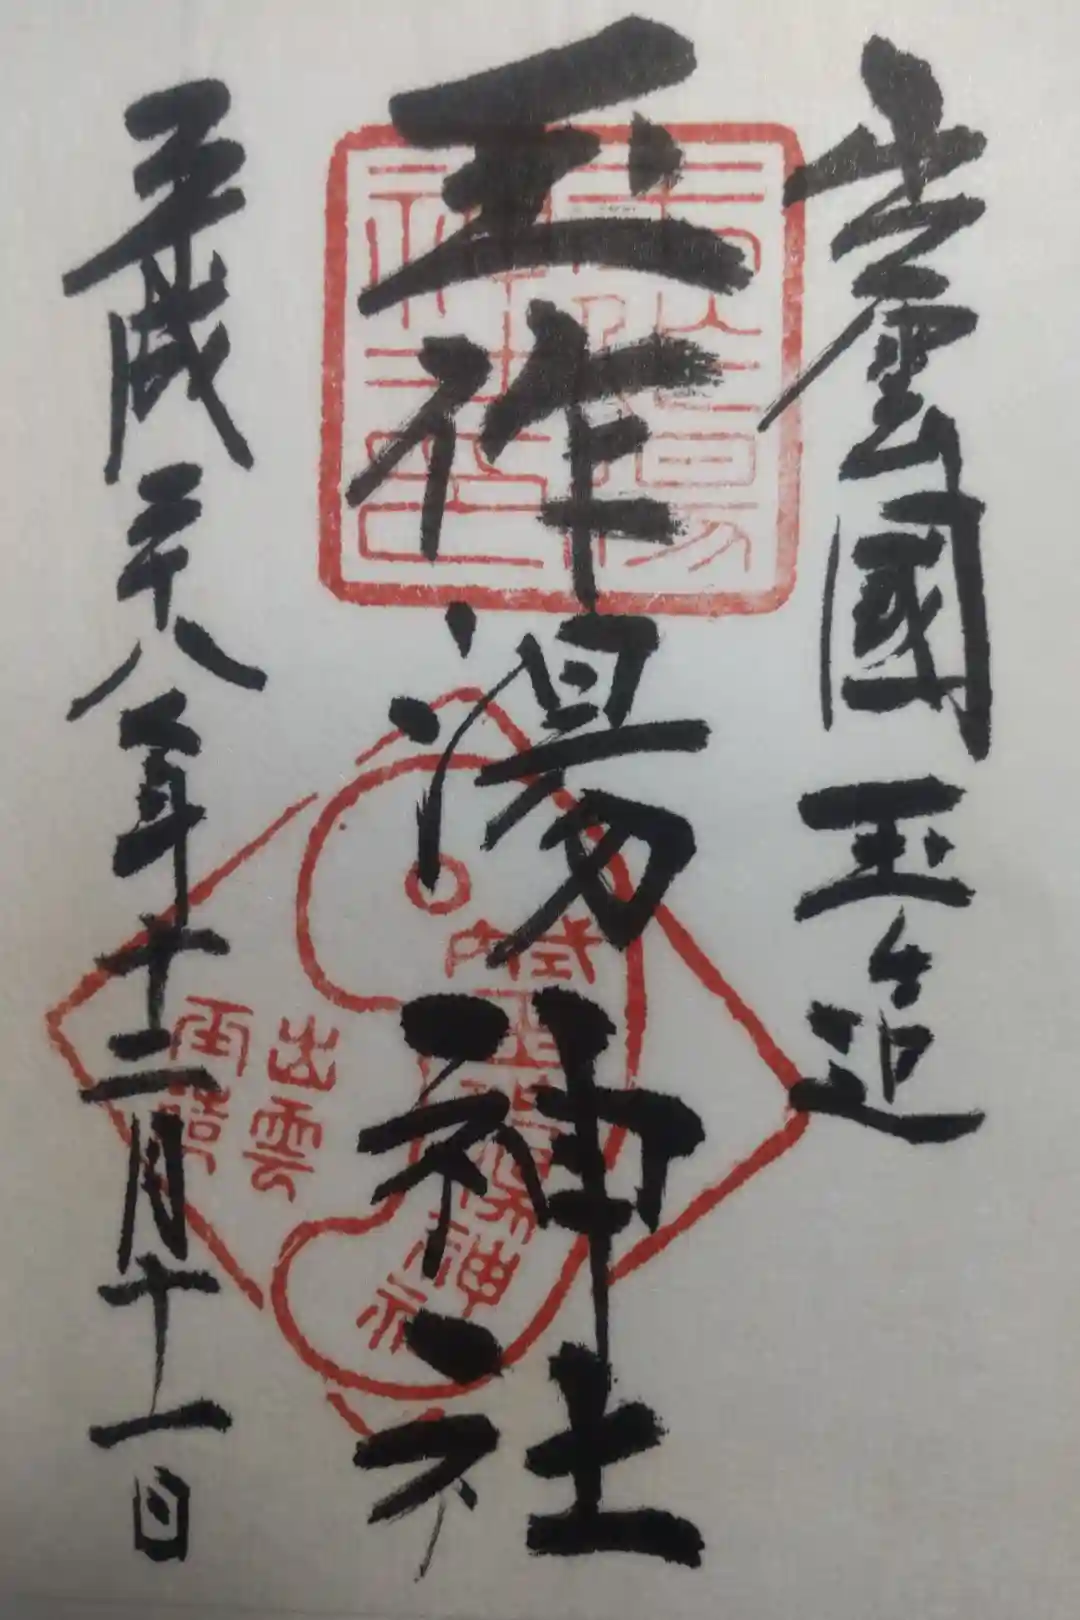 出雲國玉造
玉作湯神社
平成二十八年十二月十一日
玉作湯
神社之印
式内
玉作湯神社
出雲
玉造